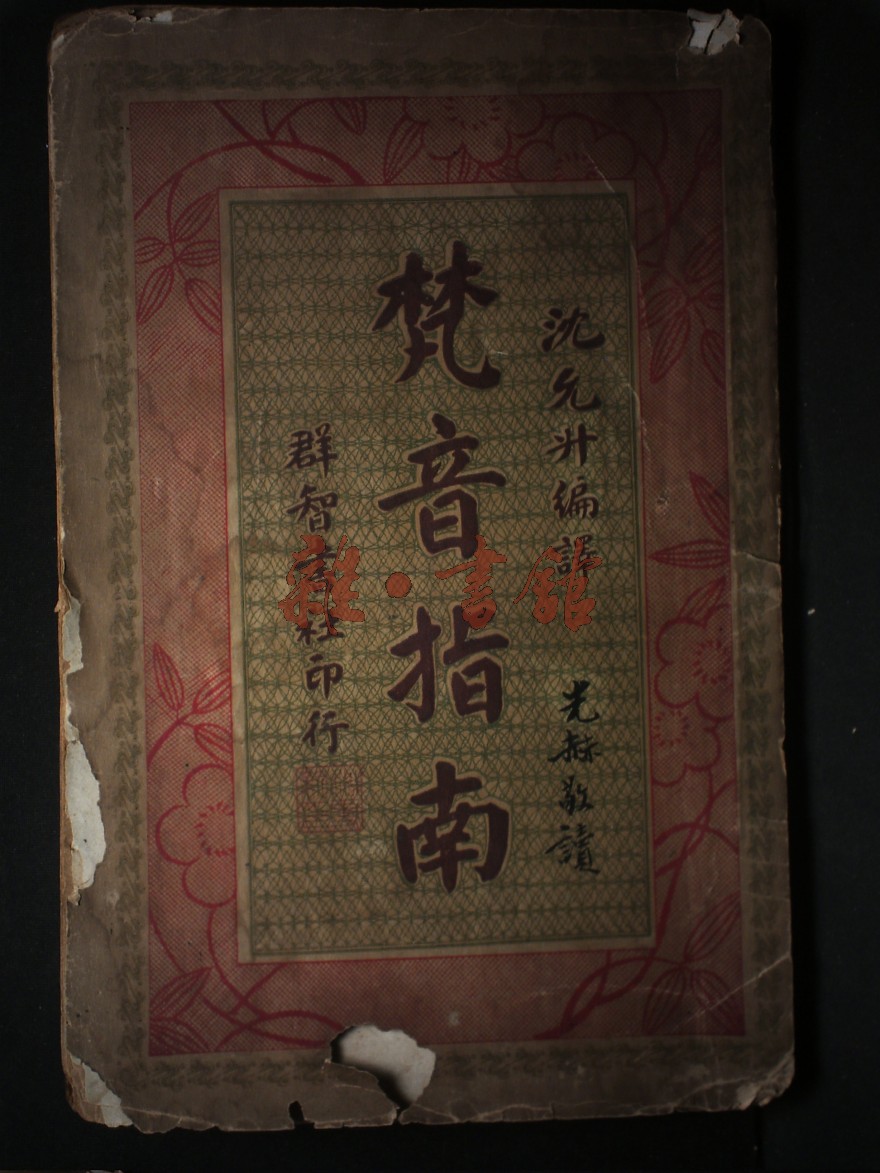 沈允升編譯
光赫敬讀
梵音指南
群智書社印行
雜·書館